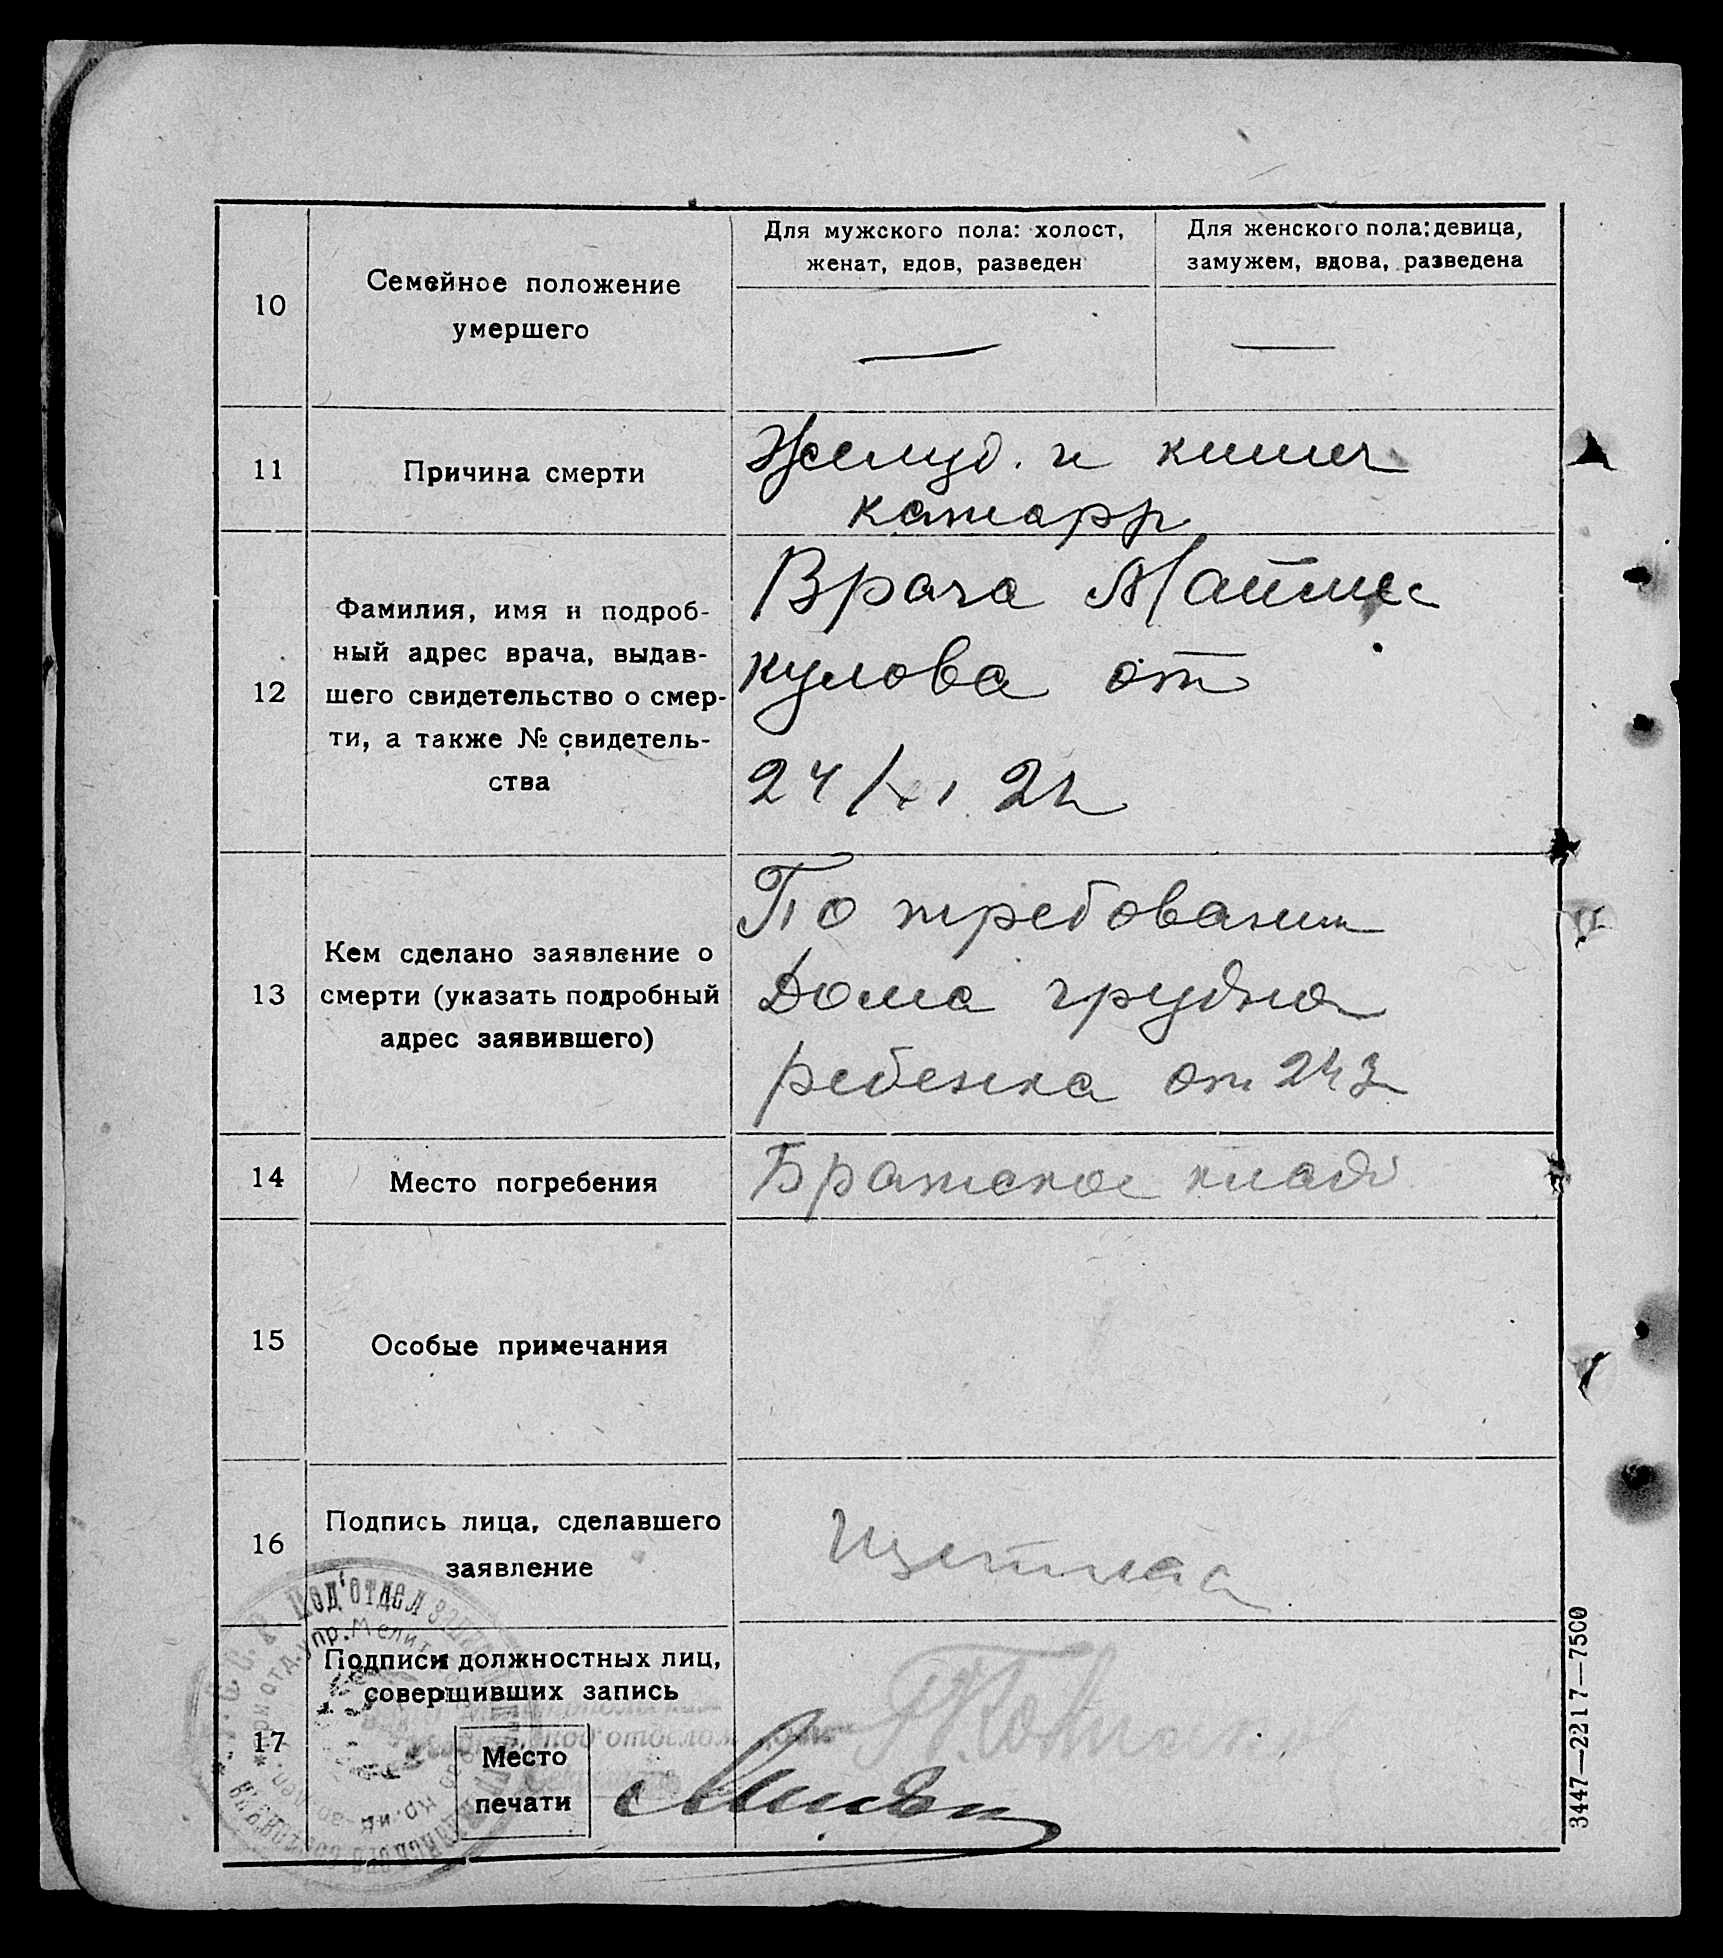 Для мужского пола: холост,
женат, вдов, разведен
Для женского пола: девица,
замужем, вдова, разведена
10
Семейное положение
умершего
—
—
11
Причина смерти
Желуд. и кишеч
катарр
12
Фамилия, имя и подроб-
ный адрес врача, выдав-
шего свидетельство о смер-
ти, а также № свидетель-
ства
Врача
кулова от
24/XI
13
Кем сделано заявление о
смерти (указать подробный
адрес заявившего)
По требовании
Дома грудно
ребенка от
14
Место погребения
Братское кладб
15
Особые примечания
16
Подпись лица, сделавшего
заявление
17
Подписи должностных лиц,
совершивших запись
Место
печати
Под'отдел
упр. Мелит
под'отделом
3447—2217—7500